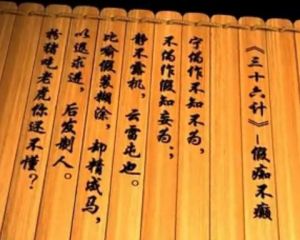 《三十六计》—假痴不癫
宁伪作不知不为，
不伪作假知妄为。，
静不露机，云雷屯也。
比喻假装糊涂，却精成马，
以退求进，后发制人。
扮猪吃老虎你还不懂？